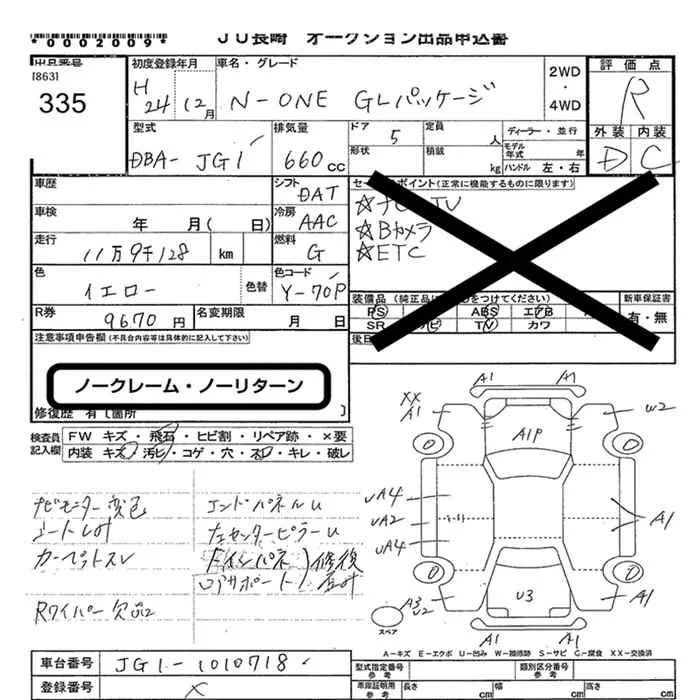 *0002009* JU長崎 オークション出品申込書
出品番号 初度登録年月 車名・グレード 評価点
[863] H 24年 12月 N-ONE GLパッケージ 2WD・4WD R
335
型式 排気量 ドア 5 定員 人 ディーラー・並行 外装 内装
DBA-JG1 660cc 形状 積載 kg モデル年式 年 ハンドル 左・右 D C
車歴 シフト DAT セールスポイント(正常に機能するものに限ります)
車検 年 月( 日) 冷房 AAC ☆ナビ TV
☆Bカメラ
走行 11万9千128 km 燃料 G ☆ETC
色 イエロー 色替 色コード Y-70P
装備品 (純正品に○をつけてください) 新車保証書
R券 9670円 名変期限 月 日 PS ABS エアB 有・無
SR ナビ TV カワ
注意事項申告欄(不具合内容等は具体的に記入して下さい) 後日
ノークレーム・ノーリターン
修復歴 有[箇所 ]
検査員記入欄 FW キズ・飛石・ヒビ割・リペア跡・×要
内装 キズ・汚ヒ・コゲ・穴・スレ・キレ・破レ
ナビモニター変色 エンドパネルU
シートしみ 左センターピラーU
カーペットスレ F インパネ 修復
コアサポート
Rワイパー欠品
A1 A1
XX
A1 W2
A1P
UA4
UA2 A1
UA4
U3
A3
U2 A1
A1 A1
スペア
A-キズ E-エクボ U-凹み W-補修跡 S-サビ C-腐食 XX-交換済
車台番号 JG1-1010718 型式指定番号 参考 類別区分番号 参考
登録番号 × 車庫証明用 参考 長さ cm 幅 cm 高さ cm